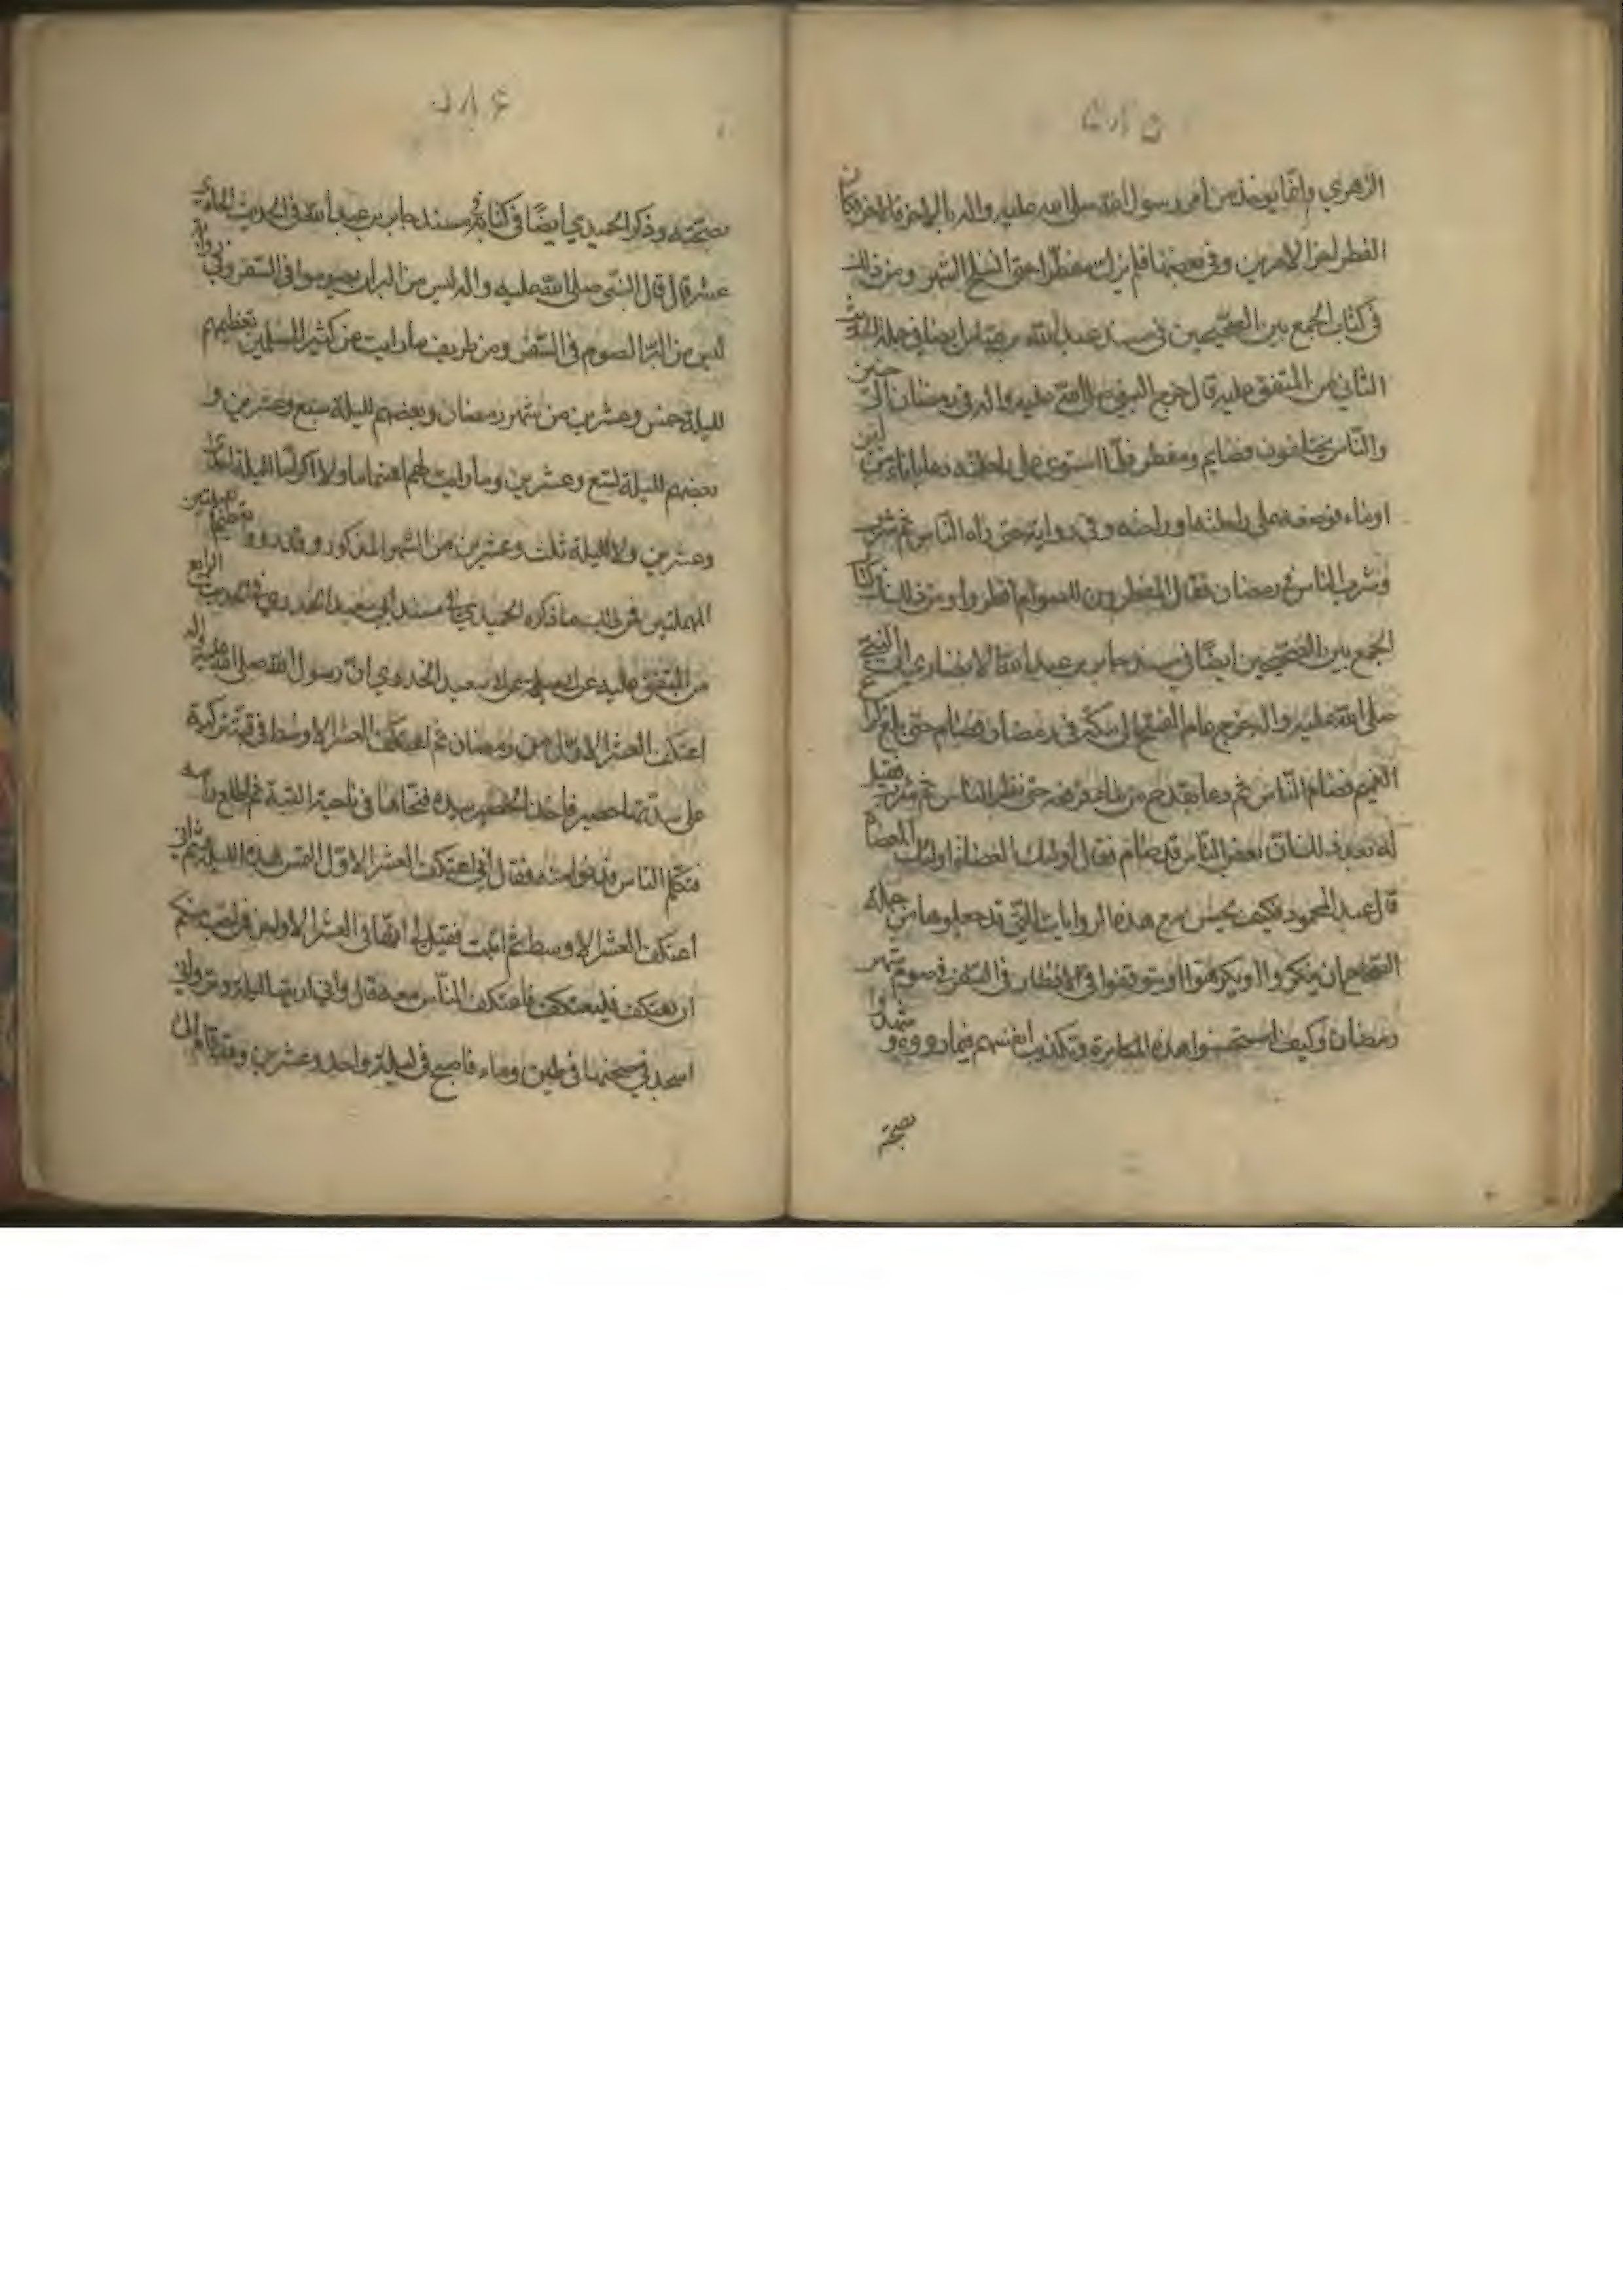 ٥٨٥
الزهري وانما يؤخذ من امر رسول الله صلى الله عليه واله بالاخر فالاخر فكان
الفطر اخر الامرين وفي بعضها فلم يزل مفطرا حتى انسلخ الشهر ومن ذلك
في كتاب الجمع بين الصحيحين في مسند عبد الله بن عباس ايضا في
الثاني من المتفق عليه قال خرج النبي صلى الله عليه واله في رمضان الى حنين
والناس مختلفون فصايم ومفطر فلما استوى على راحلته دعا باناء من لبن
او ماء فوضعه على راحلته او راحته وفي رواية حتى راه الناس ثم شرب
وشرب الناس في رمضان فقال المفطرون للصوام افطروا ومن ذلك في كتاب
الجمع بين الصحيحين ايضًا في مسند جابر بن عبد الله الانصاري ان النبي
صلى الله عليه واله خرج عام الفتح الى مكة في رمضان فصام حتى بلغ كراع
الغميم فصام الناس ثم دعا بقدح من ماء فرفعه حتى نظر الناس ثم شرب فقيل
له بعد ذلك ان بعض الناس قد صام فقال اولئك العصاة اولئك العصاة
قال عبد المحمود فكيف يحسن مع هذه الروايات التي قد جعلوها من جملة
الصحاح ان ينكروا او يكرهوا او يتوقفوا في الافطار في السفر في صوم شهر
رمضان وكيف استحسنوا هذه المكابرة وتكذيب انفسهم فيما رووه وشهدوا
بصحته
٥٨٦
بصحته وذكر الحميدي ايضًا في كتابه في مسند جابر بن عبد الله في الحديث
عشر قال قال النبي صلى الله عليه واله ليس من البر ان يصوموا في السفر وفي رواية
ليس من البر الصوم في السفر ومن طريف ما رايت من كثير المسلمين تعظيمهم
لليلة خمس وعشرين من شهر رمضان وبعضهم لليلة سبع وعشرين و
بعضهم لليلة تسع وعشرين وما رايت لهم اهتماما ولا اكراما لليلة احدى
وعشرين ولا لليلة ثلث وعشرين من الشهر المذكور وقد رووا تعظيم هاتين
المهملتين فمن ذلك ما ذكره الحميدي في مسند ابي سعيد الخدري في الحديث الرابع
من المتفق عليه عن ابي سلمة عن ابي سعيد الخدري ان رسول الله صلى الله عليه واله
اعتكف العشر الاول من رمضان ثم اعتكف العشر الاوسط في قبة تركية
على سدتها حصير فاخذ الحصير بيده فنحاها في ناحية القبة ثم اطلع راسه
فتكلم الناس فدنوا منه فقال اني اعتكف العشر الاول التمس هذه الليلة ثم اني
اعتكف العشر الاوسط ثم اتيت فقيل لي انها في العشر الاواخر فمن احب منكم
ان يعتكف فليعتكف فاعتكف الناس معه قال واني اريتها ليلة وتر واني
اسجد في صبيحتها في طين وماء فاصبح في ليلة واحد وعشرين وقد قام الى